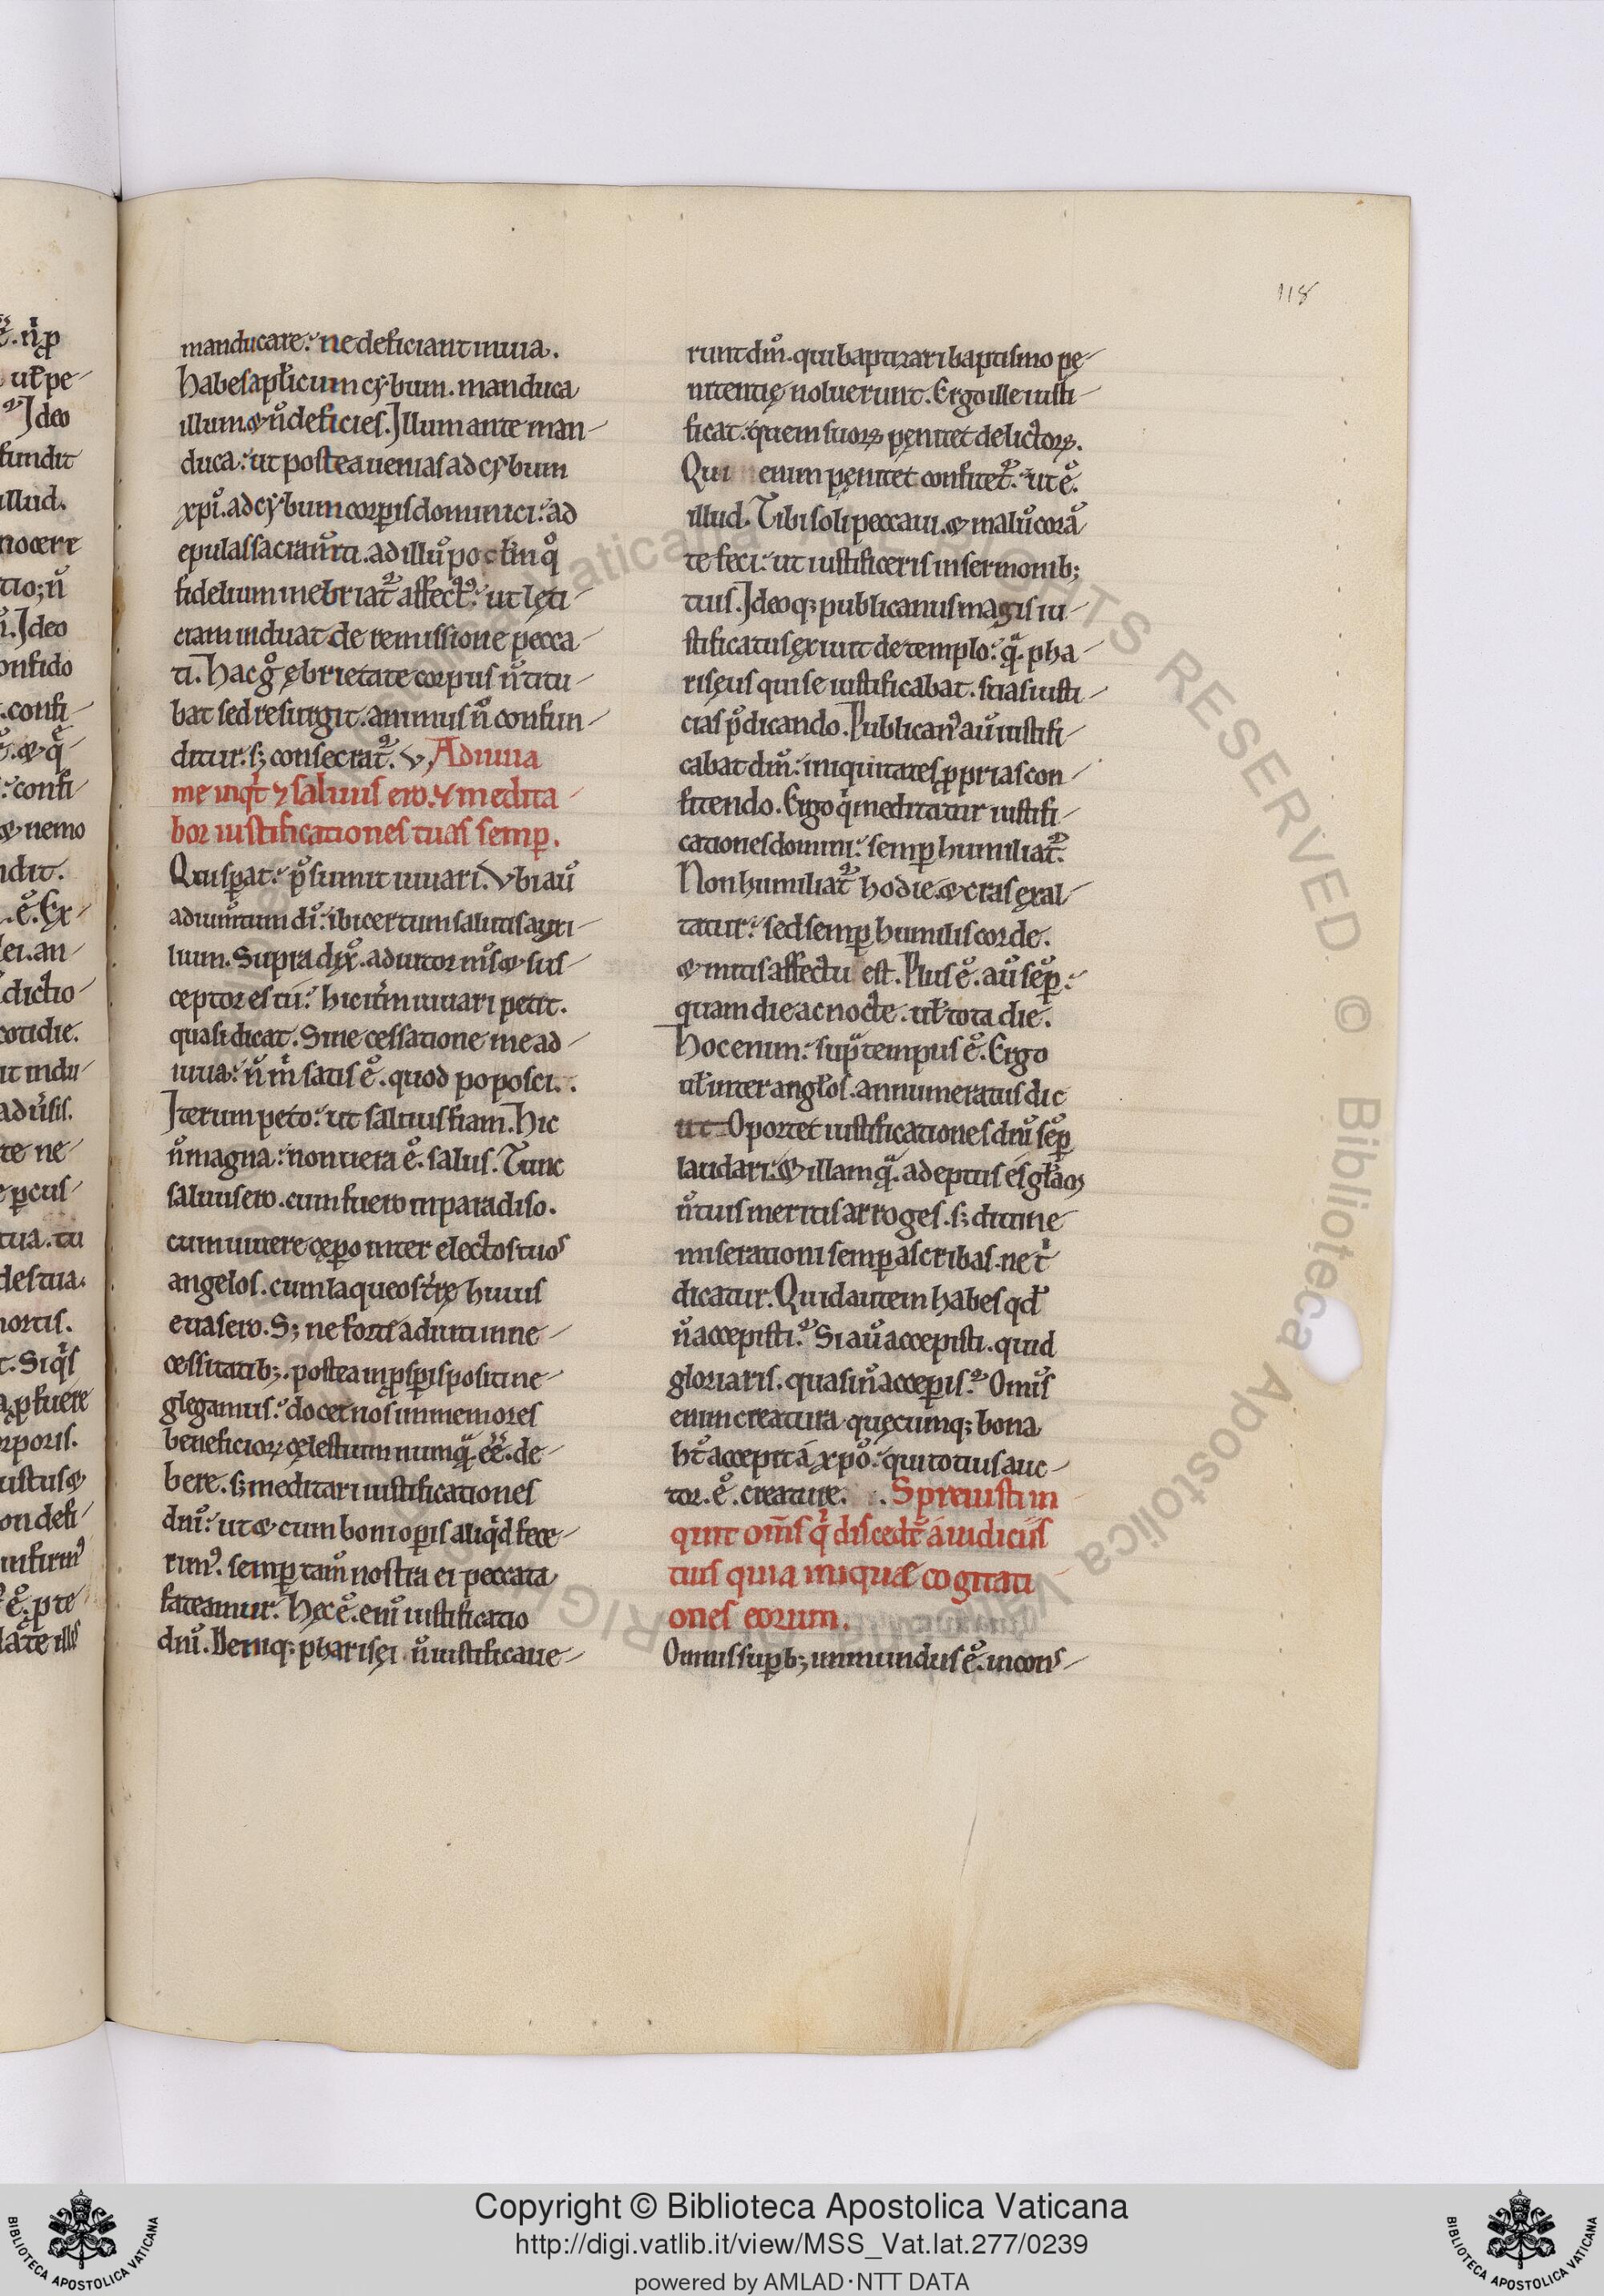 118
manducare. ne deficiant inuia.
habes apl̄icum cybum. manduca
illum. & n̄ deficies. Illum ante man-
duca. ut postea uenias ad cybum
xp̄i. ad cybum corp̄is dominici. ad
epulas sacram̄ti. ad illū poc lm̄ q̊
fidelium inebriat᷒ affect᷒. ut lęti-
ciam induat de remissione pecca-
ti. hac g̊ ębrietate corpus n̄ titu-
bat sed resurgit. animus n̄ confun-
ditur. s; consecrat᷒. V. Adiuua
me inq̇t & saluus ero. & medita-
bor iustificationes tuas semp̱.
Qui sp̱at. p̄sumit iuuari. Vbi aū
adium̄tum dī. ibi certum salutis auxi-
lium. Supra dix̄. adiutor m̄s & sus-
ceptor es tu. hic it̄m iuuari petit.
quasi dicat. Sine cessatione me ad-
iuua. n̄ m̊ satis ē. quod poposci.
Iterum peto. ut saluus fiam. Hic
n̄ magna. non uera ē. salus. Tunc
saluus ero. cum fuero in paradiso.
cum uiuere cęp̱o inter electos tuos
angelos. cum laqueos tr̄ę huius
euasero. S; ne forte adiuti in ne-
cessitatib;. postea in p̱sp̱is positi ne-
glegamus. docet nos inmemores
beneficioꝝ cęlestium numq̄. ēē. de-
bere. s; meditari iustificationes
dnī. ut & cum boni op̱is aliq̇d fece-
rim᷒. semp̱ tam̄ nostra ei peccata
fateamur. Hęc ē. enī iustificatio
dnī. Deniq; pharisęi n̄ iustificaue-
runt dm̄. qui baptizari baptismo pę-
nitentię noluerunt. Ergo ille iusti-
ficat. quem suoꝝ pęnitet delictoꝝ.
Qui enim pęnitet confitet᷒. ut ē.
illud. Tibi soli peccaui. & malū corā
te feci. ut iustificeris in sermonib;
tuis. Ideoq; publicanus magis iu-
stificatus ęxiuit de templo. q̄. pha-
risęus qui se iustificabat. suas iusti-
cias p̄dicando. Publican᷒ aū iustifi-
cabat dm̄. iniquitates p̱prias con-
fitendo. Ergo q̇ meditatur iustifi-
cationes domini. semp̱ humiliat᷒.
Non humiliat᷒ hodie. & cras ęxal-
tatur. sed semp̱ humilis corde.
& mitis affectu est. Plus ē. aū sēp̱.
quam die ac nocte. uł tota die.
Hoc enim. sup̄ tempus ē. Ergo
uł inter angłos. annumeratus dic
ut Oportet iustificationes dnī sēp̱
laudari. & illam q̄. adeptus es głaꝫ
n̄ tuis meritis arroges. s; diuine
miserationi semp̱ ascribas. ne t̊
dicatur. Quid autem habes qd̄
n̄ accepisti. Si aū accepisti. quid
gloriaris. quasi n̄ accep̱is. Omīs
enim creatura quęcumq; bona
ht̄ accepit á xp̄o. qui totius auc-
tor. ē. creature. Spreuisti in
quit om̄s q̇ discedt̄ á iudiciis
tuis quia iniquæ cogitati
ones eorum.
Omnis sup̱b; inmundus ē. incons-
Copyright © Biblioteca Apostolica Vaticana
http://digi.vatlib.it/view/MSS_Vat.lat.277/0239
powered by AMLAD·NTT DATA